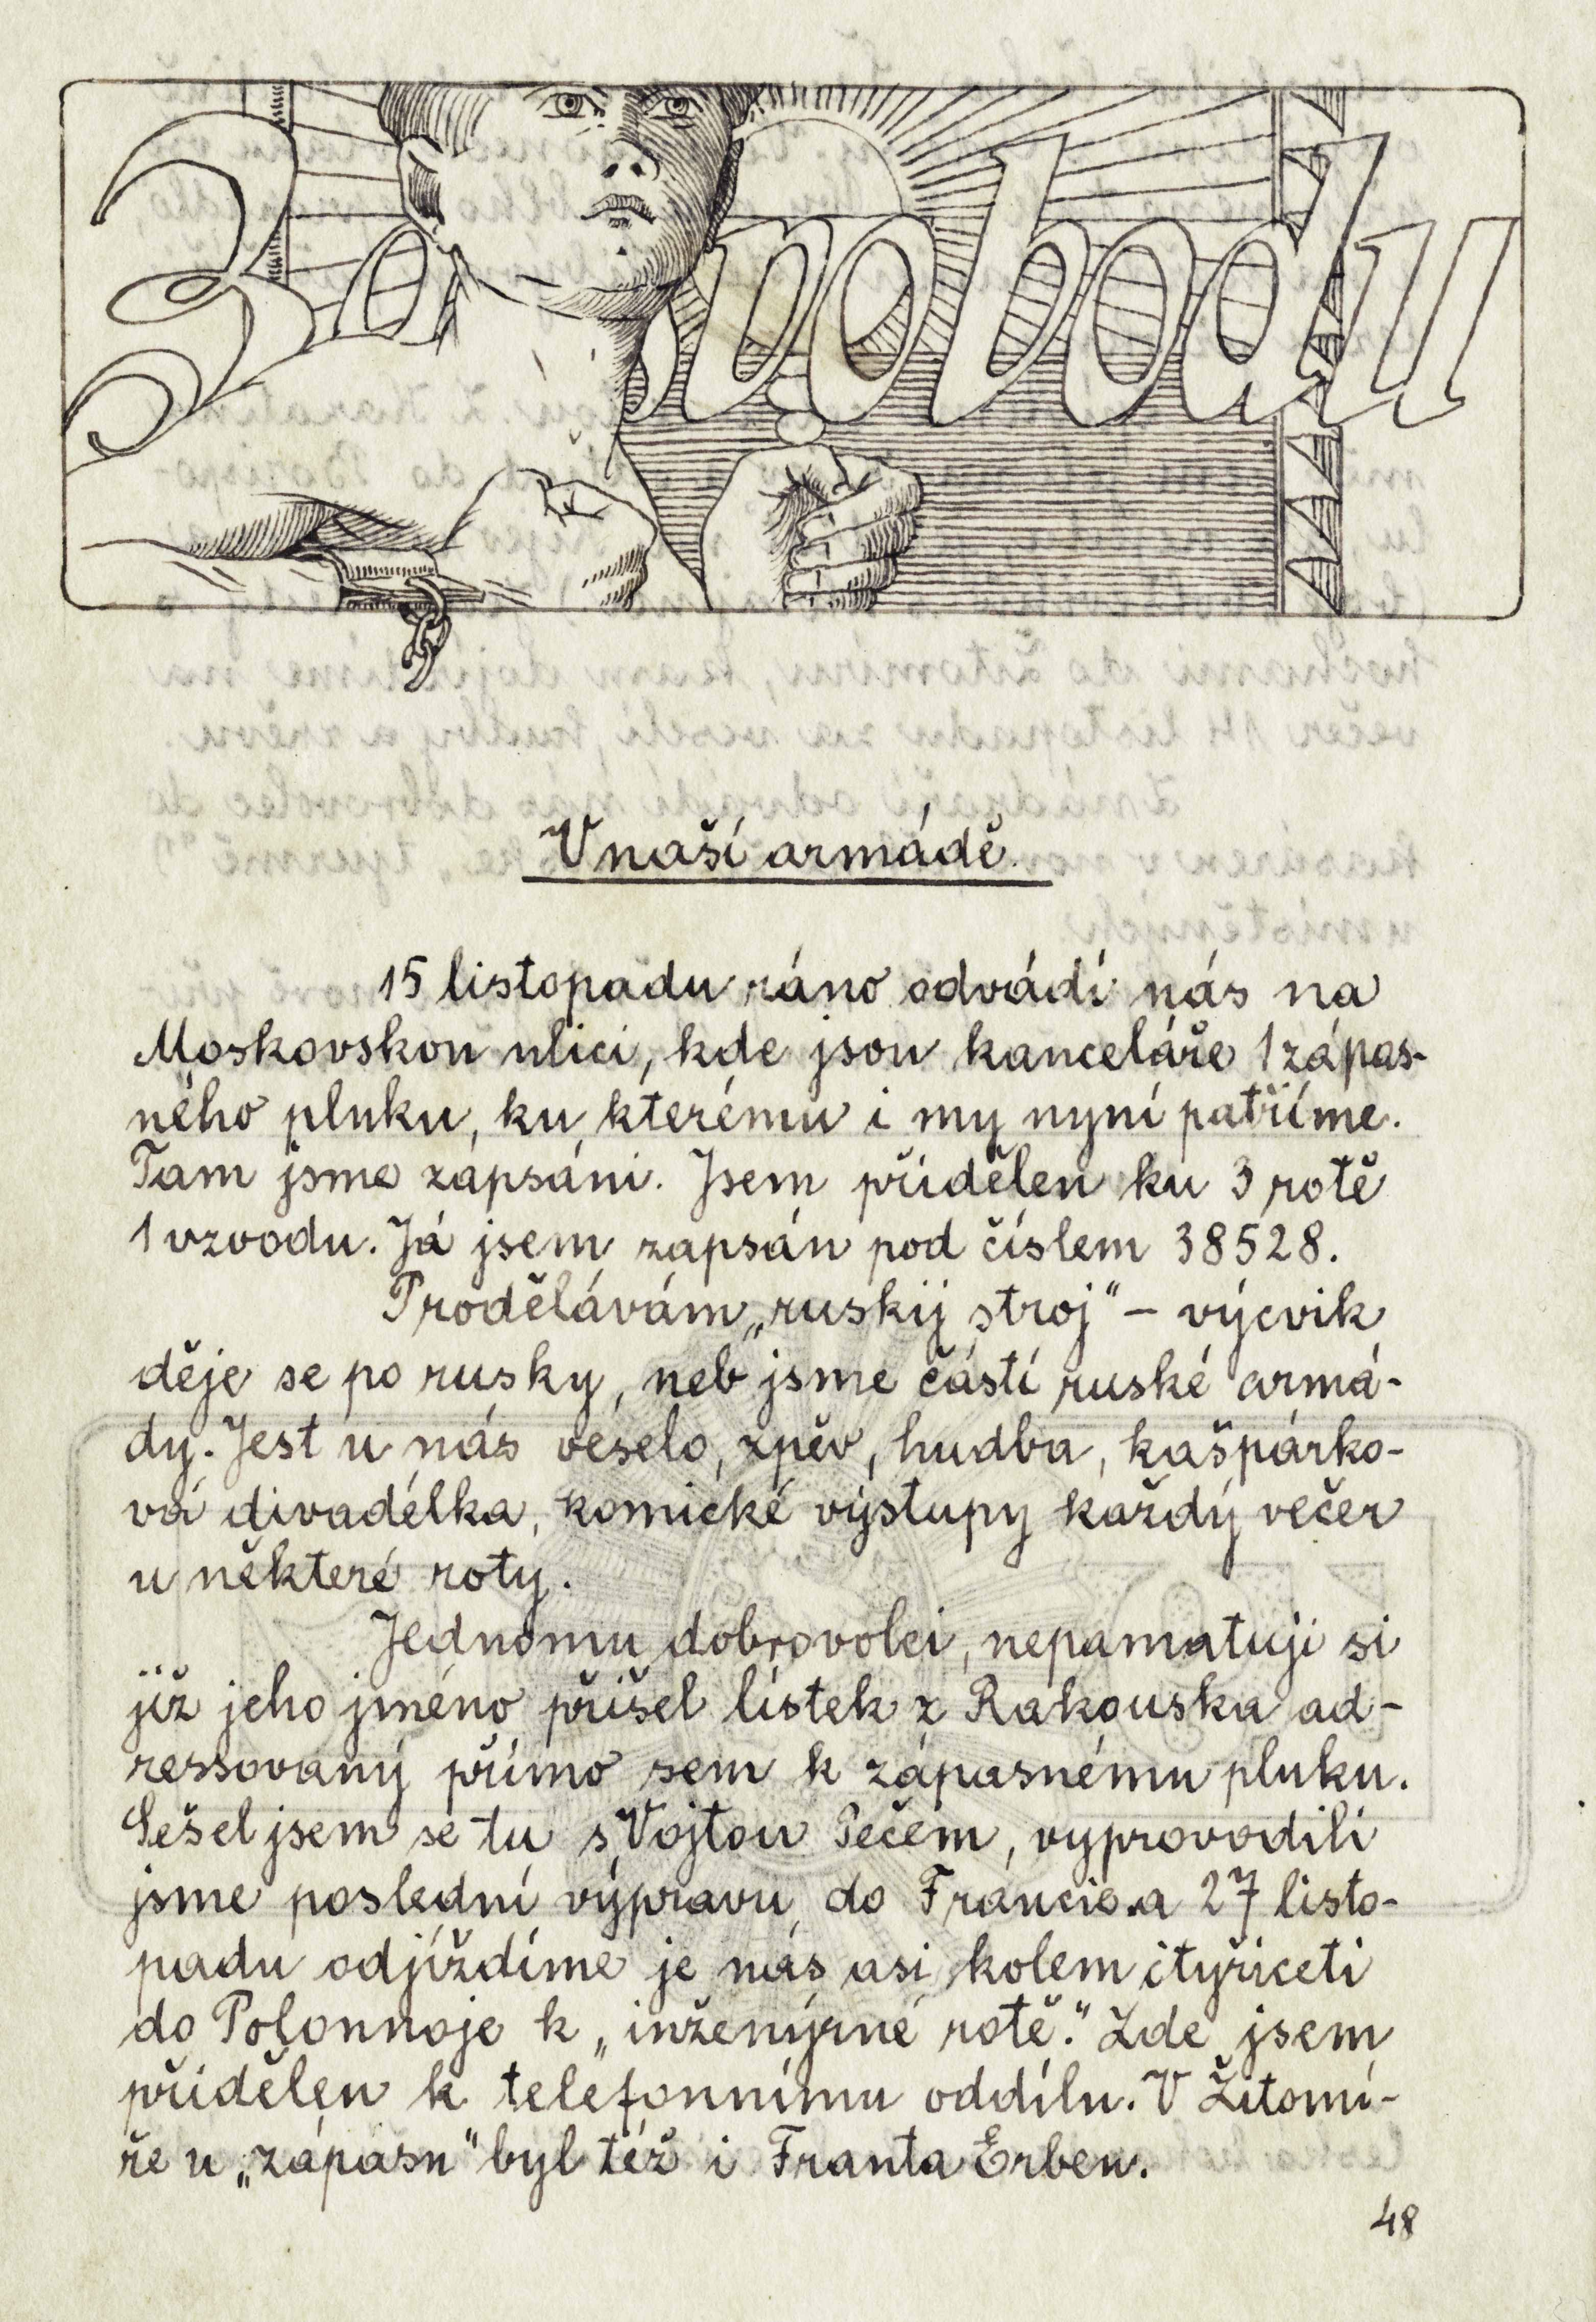 Za svobodu
V naší armádě.
15 listopadu ráno odvádí nás na
Moskovskou ulici, kde jsou kanceláře 1 zápas-
ného pluku, ku kterému i my nyní patříme.
Tam jsme zapsáni. Jsem přidělen ku 3 rotě
1 vzvodu. Já jsem zapsán pod číslem 38528.
Prodělávám „ruskij stroj" – výcvik
děje se po rusky, neb jsme částí ruské armá-
dy. Jest u nás veselo, zpěv, hudba, kašpárko-
vá divadélka, komické výstupy každý večer
u některé roty.
Jednomu dobrovolci, nepamatuji si
již jeho jméno přišel lístek z Rakouska ad-
ressovaný přímo sem k zápasnému pluku.
Sešel jsem se tu s Vojtou Pečem, vyprovodili
jsme poslední výpravu do Francie a 27 listo-
padu odjíždíme je nás asi kolem čtyřiceti
do Polonnoje k „inženýrné rotě." Zde jsem
přidělen k telefonnímu oddílu. V Žitomí-
ře u „zápasu" byl též i Franta Erben.
48